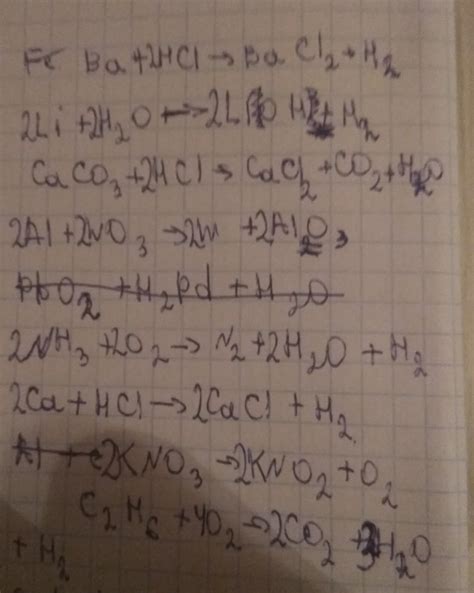 Fe Ba+2HCl→BaCl₂+H₂
2Li+2H₂O→2LiOH+H₂
CaCO₃+2HCl→CaCl₂+CO₂+H₂O
2Al+2WO₃→2W+2Al₂O₃
PbO₂+H₂Pd+H₂O
2NH₃+2O₂→N₂+2H₂O+H₂
2Ca+HCl→2CaCl+H₂
Al+2KNO₃→2KNO₂+O₂
C₂H₆+4O₂→2CO₂+3H₂O
+H₂